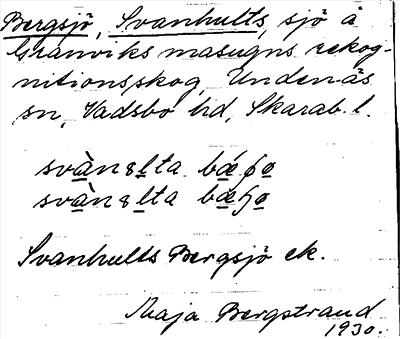 Bergsjö, Svanhults, sjö å
Granviks masugns rekog-
nitionsskog, Undenäs
sn, Vadsbo hd, Skarab. l.
Svanhults Bergsjö ek.
Maja Bergstrand
1930.